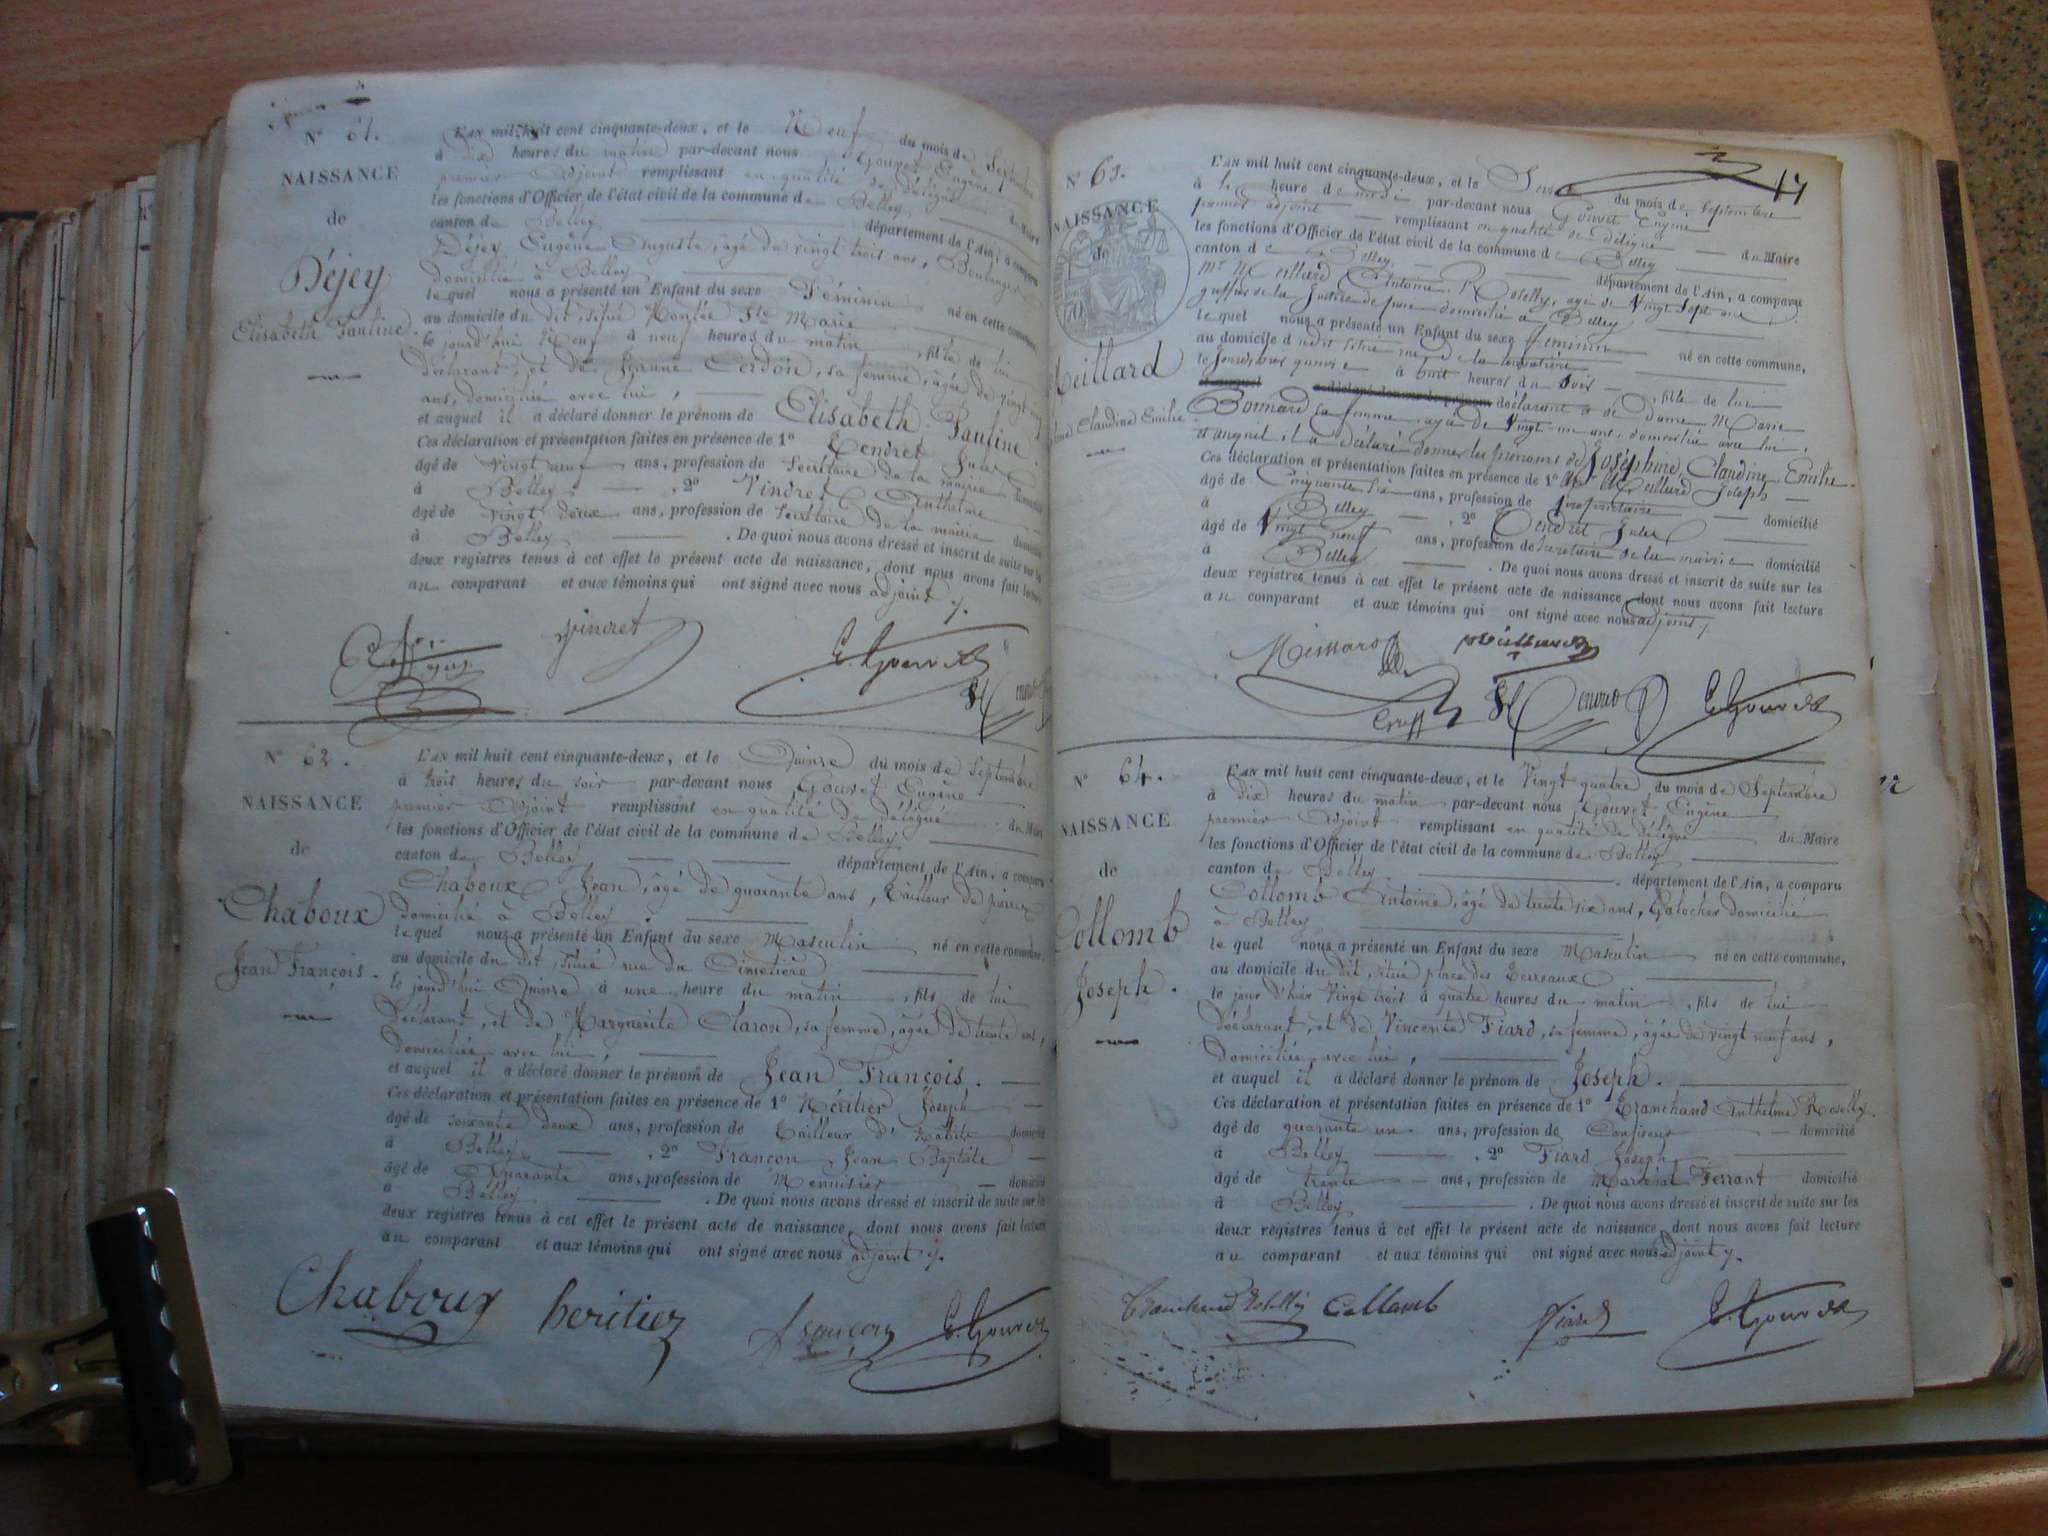 N° 61.
NAISSANCE
de
Déjey
Elisabeth Pauline.
L'AN mil huit cent cinquante-deux, et le Neuf du mois de Septembre
à dix heures du matin par-devant nous Gouvet Eugène
premier Adjoint remplissant en qualité de délégué du Maire
les fonctions d'Officier de l'état civil de la commune de Belley
canton de Belley département de l'Ain, a comparu
Déjey Eugène Auguste, âgé de vingt trois ans, Boulanger
domicilié à Belley
lequel nous a présenté un Enfant du sexe Féminin né en cette commune,
au domicile du dit, situé Montée Ste Marie
le jourd'hui Neuf à neuf heures du matin, fille de lui
déclarant, et de Jeanne Cerdon, sa femme, âgée de vingt
ans, domiciliée avec lui,
et auquel il a déclaré donner le prénom de Elisabeth Pauline.
Ces déclaration et présentation faites en présence de 1° Tendret Jules
âgé de vingt neuf ans, profession de Secrétaire de la mairie domicilié
à Belley, 2° Vindret Anthelme
âgé de vingt deux ans, profession de Secrétaire de la mairie domicilié
à Belley. De quoi nous avons dressé et inscrit de suite sur les
deux registres tenus à cet effet le présent acte de naissance, dont nous avons fait lecture
au comparant et aux témoins qui ont signé avec nous adjoint ./.
Vindret E. Gouvet
N° 62.
NAISSANCE
de
Chaboux
Jean François.
L'AN mil huit cent cinquante-deux, et le Quinze du mois de Septembre
à trois heures du soir par-devant nous Gouvet Eugène
premier Adjoint remplissant en qualité de délégué du Maire
les fonctions d'Officier de l'état civil de la commune de Belley
canton de Belley département de l'Ain, a comparu
Chaboux Jean, âgé de quarante ans, Tailleur de pierres
domicilié à Belley.
lequel nous a présenté un Enfant du sexe Masculin né en cette commune,
au domicile du dit, situé rue du Cimetière
le jourd'hui Quinze à une heure du matin, fils de lui
déclarant, et de Marguerite Claron, sa femme, âgée de trente ans,
domiciliée avec lui,
et auquel il a déclaré donner le prénom de Jean François.
Ces déclaration et présentation faites en présence de 1° Héritier Joseph
âgé de soixante deux ans, profession de Tailleur d'habits domicilié
à Belley, 2° Françon Jean Baptiste
âgé de Quarante ans, profession de Menuisier domicilié
à Belley. De quoi nous avons dressé et inscrit de suite sur les
deux registres tenus à cet effet le présent acte de naissance, dont nous avons fait lecture
au comparant et aux témoins qui ont signé avec nous adjoint ./.
Chaboux heritier françon E. Gouvet
17
N° 63.
NAISSANCE
de
Meillard
Claudine Emilie
L'AN mil huit cent cinquante-deux, et le Seize du mois de Septembre
à heure de midi par-devant nous Gouvet Eugène
premier adjoint remplissant en qualité de délégué du Maire
les fonctions d'Officier de l'état civil de la commune de Belley
canton de Belley département de l'Ain, a comparu
Mr Meillard Antoine Roselly, âgé de Vingt sept ans,
greffier de la Justice de paix domicilié à Belley
lequel nous a présenté un Enfant du sexe féminin né en cette commune,
au domicile du dit situé rue de la
le Jour d'hier quinze à huit heures du soir, fille de lui
déclarant & de Dame Marie
Bonnard sa femme, âgée de Vingt-un ans, domiciliée avec lui,
et auquel il a déclaré donner les prénoms de Joséphine, Claudine, Emilie.
Ces déclaration et présentation faites en présence de 1° Mr Meillard Joseph
âgé de Cinquante six ans, profession de propriétaire domicilié
à Belley, 2° Tendret Jules
âgé de Vingt neuf ans, profession de Secrétaire de la mairie domicilié
à Belley. De quoi nous avons dressé et inscrit de suite sur les
deux registres tenus à cet effet le présent acte de naissance, dont nous avons fait lecture
au comparant et aux témoins qui ont signé avec nous adjoint ./.
Meillard
E. Gouvet
N° 64.
NAISSANCE
de
Collomb
Joseph.
L'AN mil huit cent cinquante-deux, et le Vingt quatre du mois de Septembre
à Dix heures du matin par-devant nous Gouvet Eugène
premier Adjoint remplissant en qualité de délégué du Maire
les fonctions d'Officier de l'état civil de la commune de Belley
canton de Belley. département de l'Ain, a comparu
Collomb Antoine, âgé de trente six ans, Galocher domicilié
à Belley
lequel nous a présenté un Enfant du sexe Masculin né en cette commune,
au domicile du dit, situé place des Terreaux
le jour d'hier Vingt trois à quatre heures du matin, fils de lui
déclarant, et de Vincente Fiard, sa femme, âgée de vingt neuf ans,
domiciliée avec lui,
et auquel il a déclaré donner le prénom de Joseph.
Ces déclaration et présentation faites en présence de 1° Tranchand Anthelme Roselly.
âgé de quarante un ans, profession de Confiseur domicilié
à Belley, 2° Fiard Joseph
âgé de trente ans, profession de Maréchal Ferrant domicilié
à Belley. De quoi nous avons dressé et inscrit de suite sur les
deux registres tenus à cet effet le présent acte de naissance, dont nous avons fait lecture
au comparant et aux témoins qui ont signé avec nous adjoint ./.
Tranchand Collomb fiard E. Gouvet